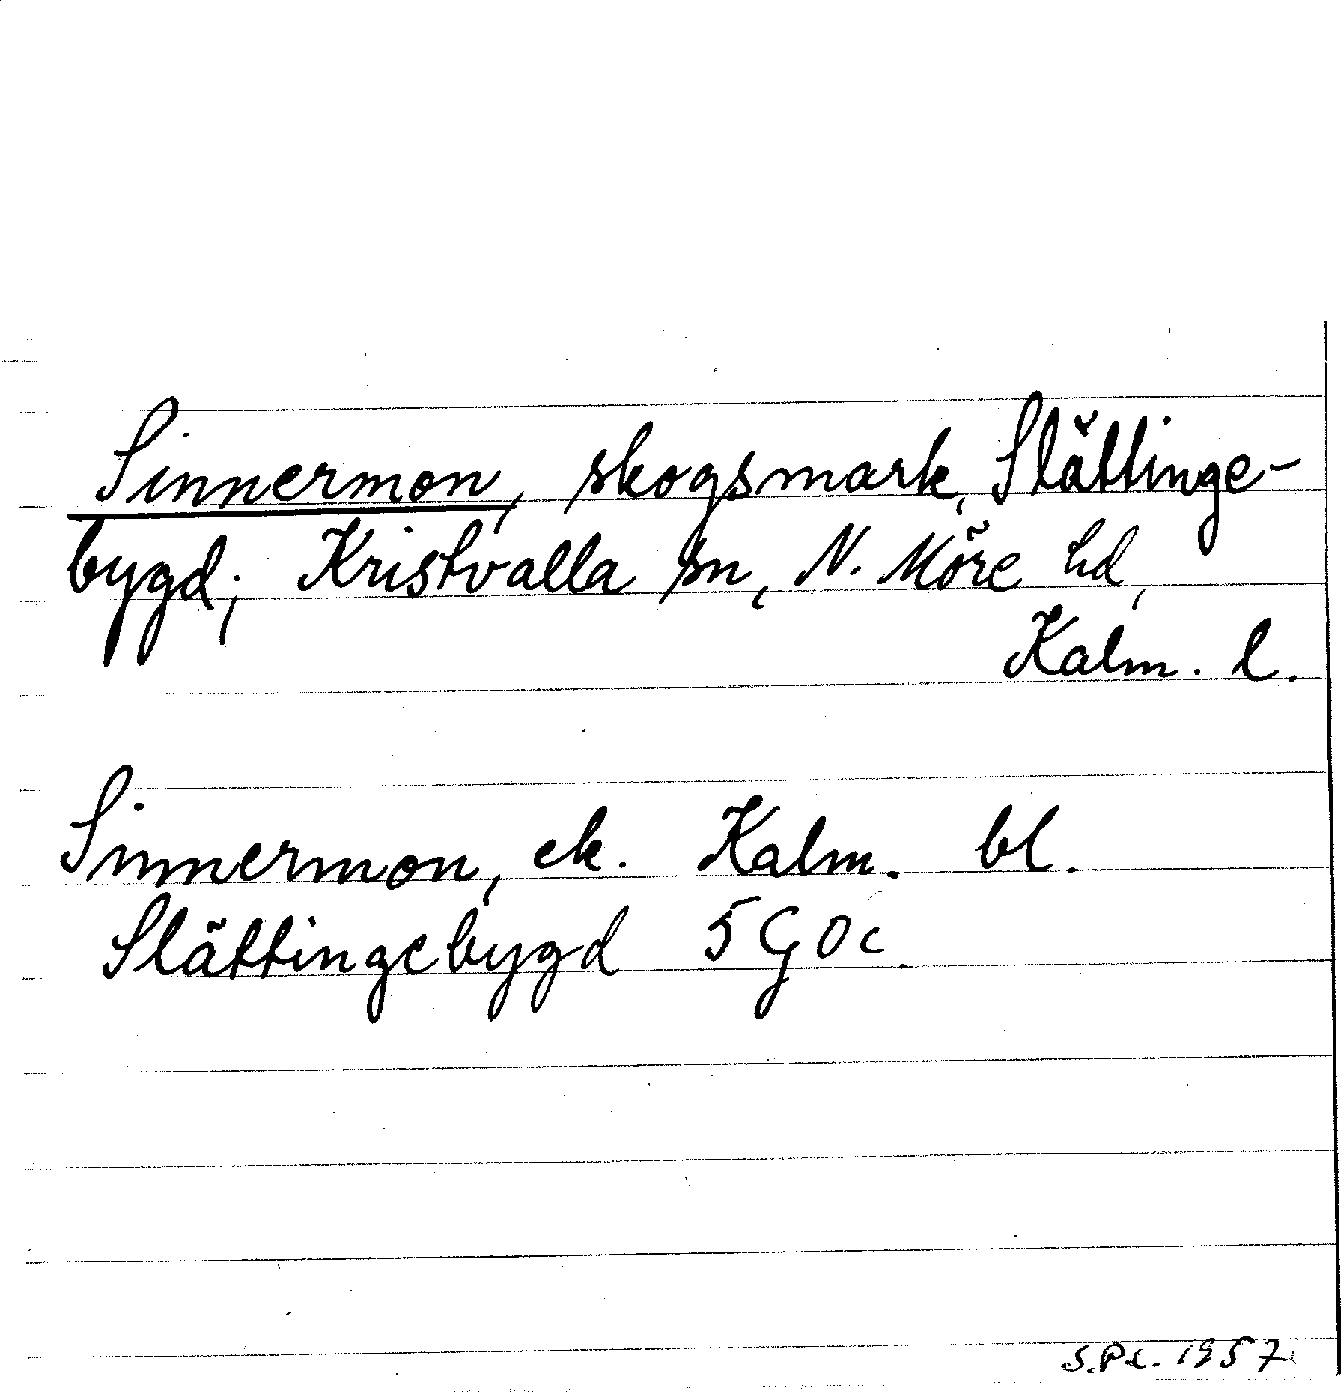 Sinnermon, skogsmark, Slättinge-
bygd; Kristvalla sn, N. Möre hd,
Kalm. l.
Sinnermon, ek. Kalm. bl.
Slättingebygd 5 G 0c
S.Pl. 1957